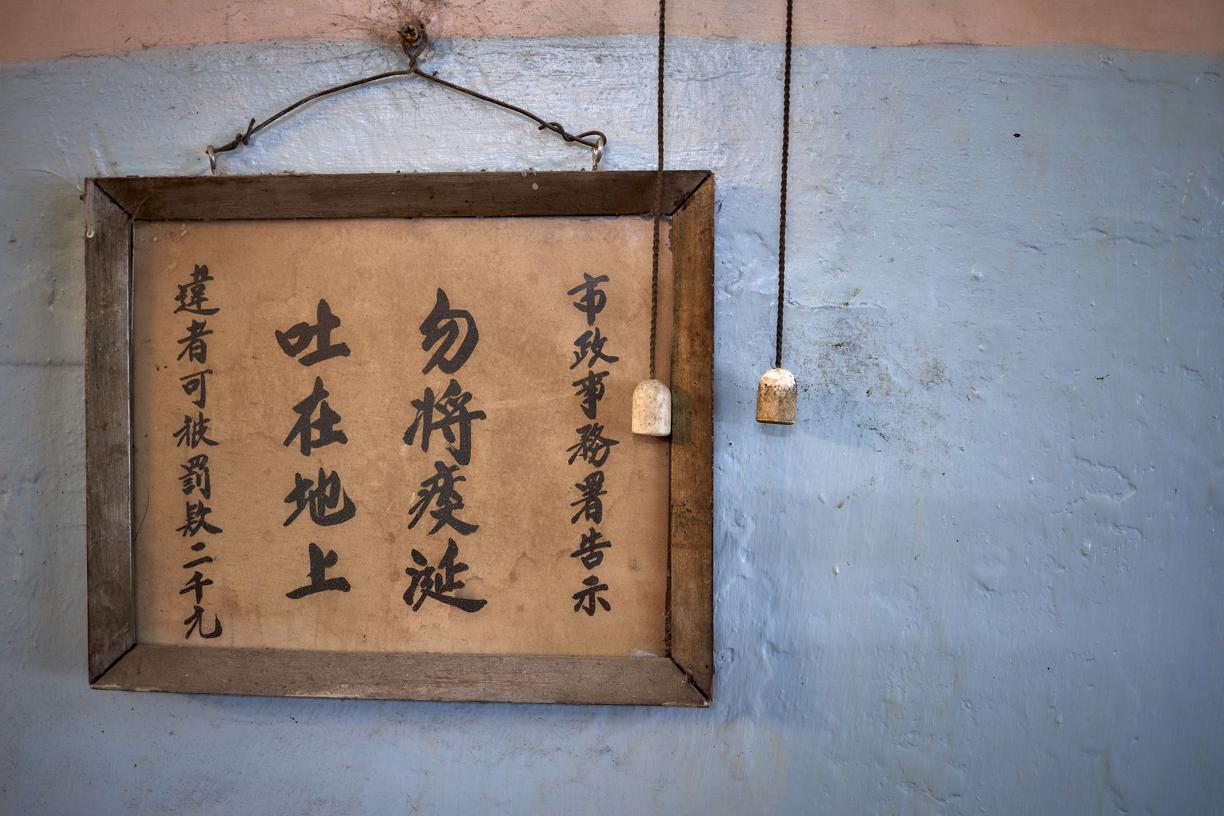 市政事務署告示
勿將痰涎
吐在地上
違者可被罰款二千元